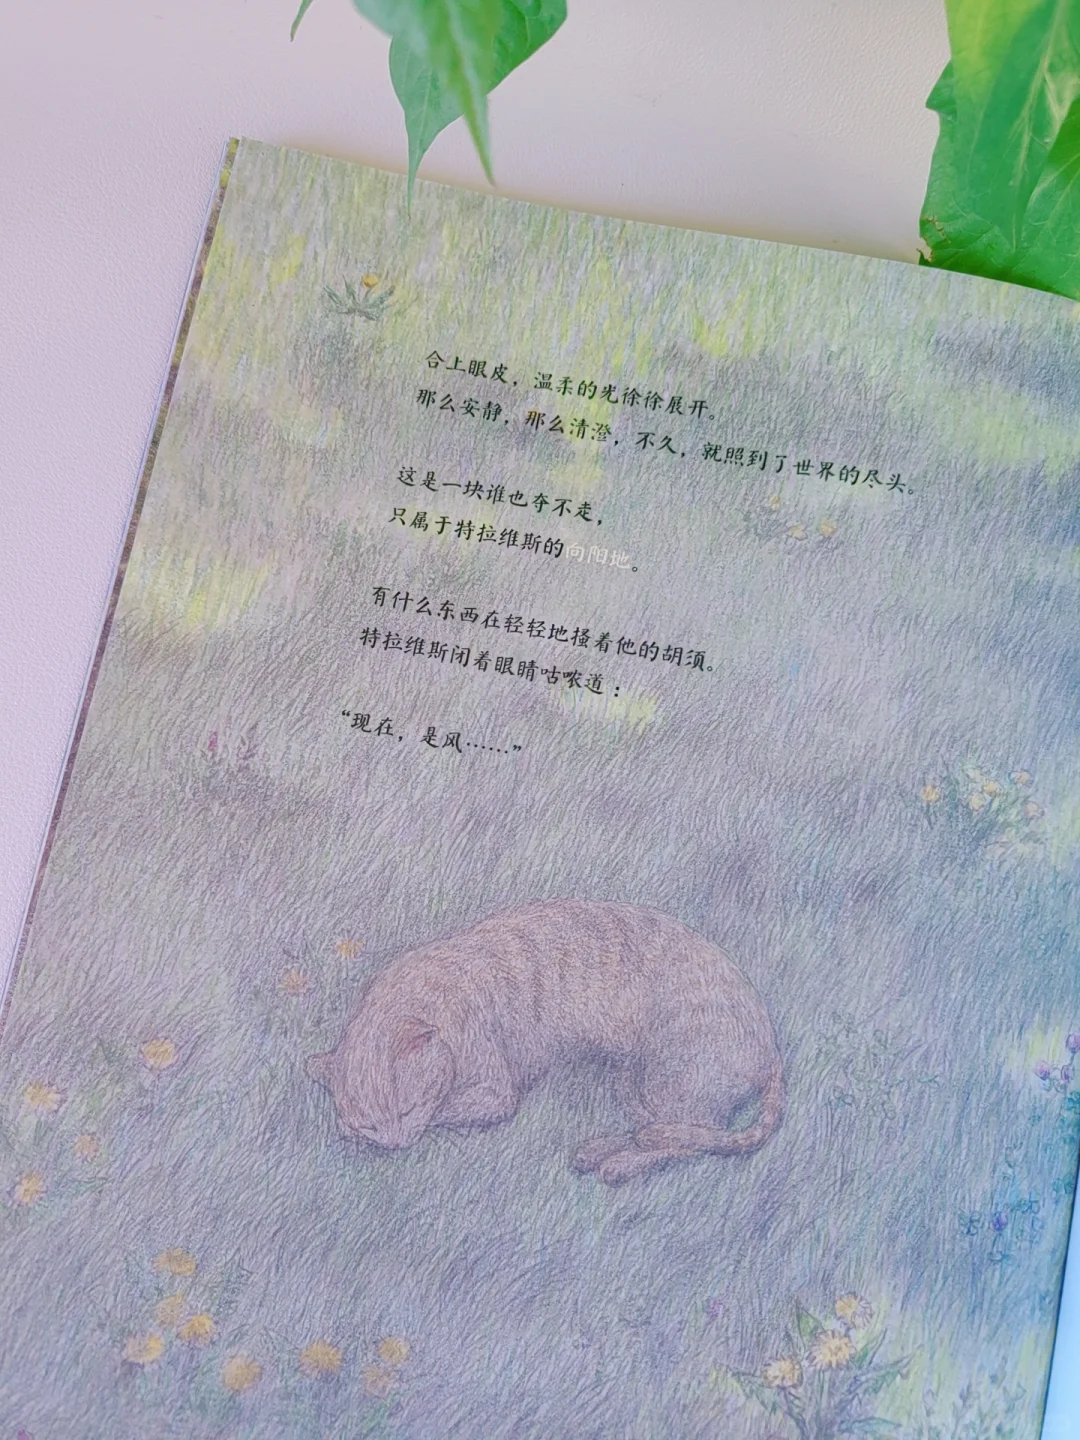 合上眼皮，温柔的光徐徐展开。
那么安静，那么清澄，不久，就照到了世界的尽头。
这是一块谁也夺不走，
只属于特拉维斯的向阳地。
有什么东西在轻轻地搔着他的胡须。
特拉维斯闭着眼睛咕哝道：
“现在，是风……”